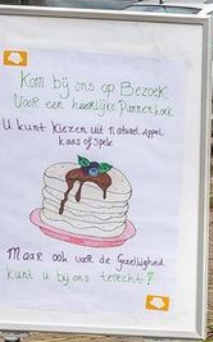 Kom bij ons op Bezoek
Voor een heerlijke Pannenkoek
U kunt kiezen uit naturel appel
kaas of spek
Maar ook voor de Gezelligheid
kunt u bij ons terecht!